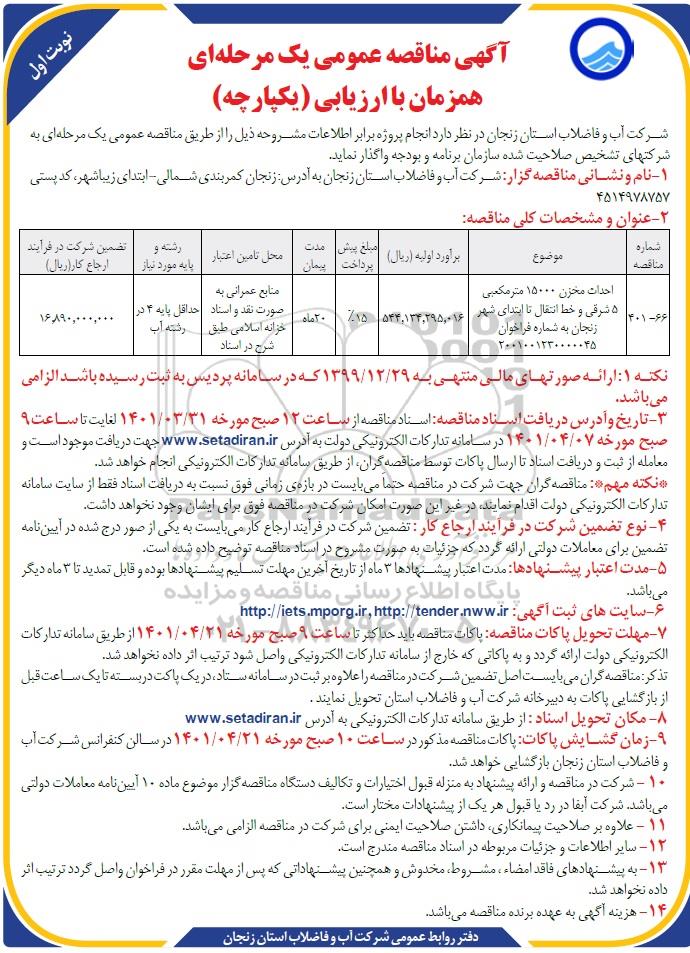 نوبت اول
آگهی مناقصه عمومی یک مرحله‌ای
همزمان با ارزیابی (یکپارچه)
شرکت آب و فاضلاب استان زنجان در نظر دارد انجام پروژه برابر اطلاعات مشروحه ذیل را از طریق مناقصه عمومی یک مرحله‌ای به
شرکتهای تشخیص صلاحیت شده سازمان برنامه و بودجه واگذار نماید.
۱-نام و نشانی مناقصه‌گزار: شرکت آب و فاضلاب استان زنجان به آدرس: زنجان کمربندی شمالی-ابتدای زیباشهر، کد پستی
۴۵۱۴۹۷۸۷۵۷
۲-عنوان و مشخصات کلی مناقصه:
شماره مناقصه | موضوع | برآورد اولیه (ریال) | مبلغ پیش پرداخت | مدت پیمان | محل تامین اعتبار | رشته و پایه مورد نیاز | تضمین شرکت در فرآیند ارجاع کار(ریال)
۶۶-۴۰۱ | احداث مخزن ۱۵۰۰۰ مترمکعبی ۵ شرقی و خط انتقال تا ابتدای شهر زنجان به شماره فراخوان ۲۰۰۱۰۰۱۲۳۰۰۰۰۰۴۵ | ۵۴۴,۱۳۴,۲۹۵,۰۱۶ | ۱۵٪ | ۲۰ماه | منابع عمرانی به صورت نقد و اسناد خزانه اسلامی طبق شرح در اسناد | حداقل پایه ۴ در رشته آب | ۱۶,۸۹۰,۰۰۰,۰۰۰
نکته ۱: ارائه صورتهای مالی منتهی به ۱۳۹۹/۱۲/۲۹ که در سامانه پردیس به ثبت رسیده باشد الزامی
می‌باشد.
۳-تاریخ و آدرس دریافت اسناد مناقصه: اسناد مناقصه از ساعت ۱۲ صبح مورخه ۱۴۰۱/۰۳/۳۱ لغایت تا ساعت ۹
صبح مورخه ۱۴۰۱/۰۴/۰۷ در سامانه تدارکات الکترونیکی دولت به آدرس www.setadiran.ir جهت دریافت موجود است و
معامله از ثبت و دریافت اسناد تا ارسال پاکات توسط مناقصه‌گران، از طریق سامانه تدارکات الکترونیکی انجام خواهد شد.
*نکته مهم*: مناقصه‌گران جهت شرکت در مناقصه حتماً می‌بایست در بازه‌ی زمانی فوق نسبت به دریافت اسناد فقط از سایت سامانه
تدارکات الکترونیکی دولت اقدام نمایند، در غیر این صورت امکان شرکت در مناقصه فوق برای ایشان وجود نخواهد داشت.
۴- نوع تضمین شرکت در فرآیند ارجاع کار : تضمین شرکت در فرآیند ارجاع کار می‌بایست به یکی از صور درج شده در آیین‌نامه
تضمین برای معاملات دولتی ارائه گردد که جزئیات به صورت مشروح در اسناد مناقصه توضیح داده شده است.
۵-مدت اعتبار پیشنهادها: مدت اعتبار پیشنهادها ۳ ماه از تاریخ آخرین مهلت تسلیم پیشنهادها بوده و قابل تمدید تا ۳ ماه دیگر
می‌باشد.
۶-سایت های ثبت آگهی: http://iets.mporg.ir, http://tender.nww.ir
۷-مهلت تحویل پاکات مناقصه: پاکات مناقصه باید حداکثر تا ساعت ۹ صبح مورخه ۱۴۰۱/۰۴/۲۱ از طریق سامانه تدارکات
الکترونیکی دولت ارائه گردد و به پاکاتی که خارج از سامانه تدارکات الکترونیکی واصل شود ترتیب اثر داده نخواهد شد.
تذکر: مناقصه‌گران می‌بایست اصل تضمین شرکت در مناقصه را علاوه بر ثبت در سامانه ستاد، در یک پاکت دربسته تا یک ساعت قبل
از بازگشایی پاکات به دبیرخانه شرکت آب و فاضلاب استان تحویل نمایند .
۸- مکان تحویل اسناد : از طریق سامانه تدارکات الکترونیکی به آدرس www.setadiran.ir
۹-زمان گشایش پاکات: پاکات مناقصه مذکور در ساعت ۱۰ صبح مورخه ۱۴۰۱/۰۴/۲۱ در سالن کنفرانس شرکت آب
و فاضلاب استان زنجان بازگشایی خواهد شد.
۱۰ - شرکت در مناقصه و ارائه پیشنهاد به منزله قبول اختیارات و تکالیف دستگاه مناقصه‌گزار موضوع ماده ۱۰ آیین‌نامه معاملات دولتی
می‌باشد. شرکت آبفا در رد یا قبول هر یک از پیشنهادات مختار است.
۱۱ - علاوه بر صلاحیت پیمانکاری، داشتن صلاحیت ایمنی برای شرکت در مناقصه الزامی می‌باشد.
۱۲- سایر اطلاعات و جزئیات مربوطه در اسناد مناقصه مندرج است.
۱۳- به پیشنهادهای فاقد امضاء ، مشروط، مخدوش و همچنین پیشنهاداتی که پس از مهلت مقرر در فراخوان واصل گردد ترتیب اثر
داده نخواهد شد.
۱۴- هزینه آگهی به عهده برنده مناقصه می‌باشد.
دفتر روابط عمومی شرکت آب و فاضلاب استان زنجان